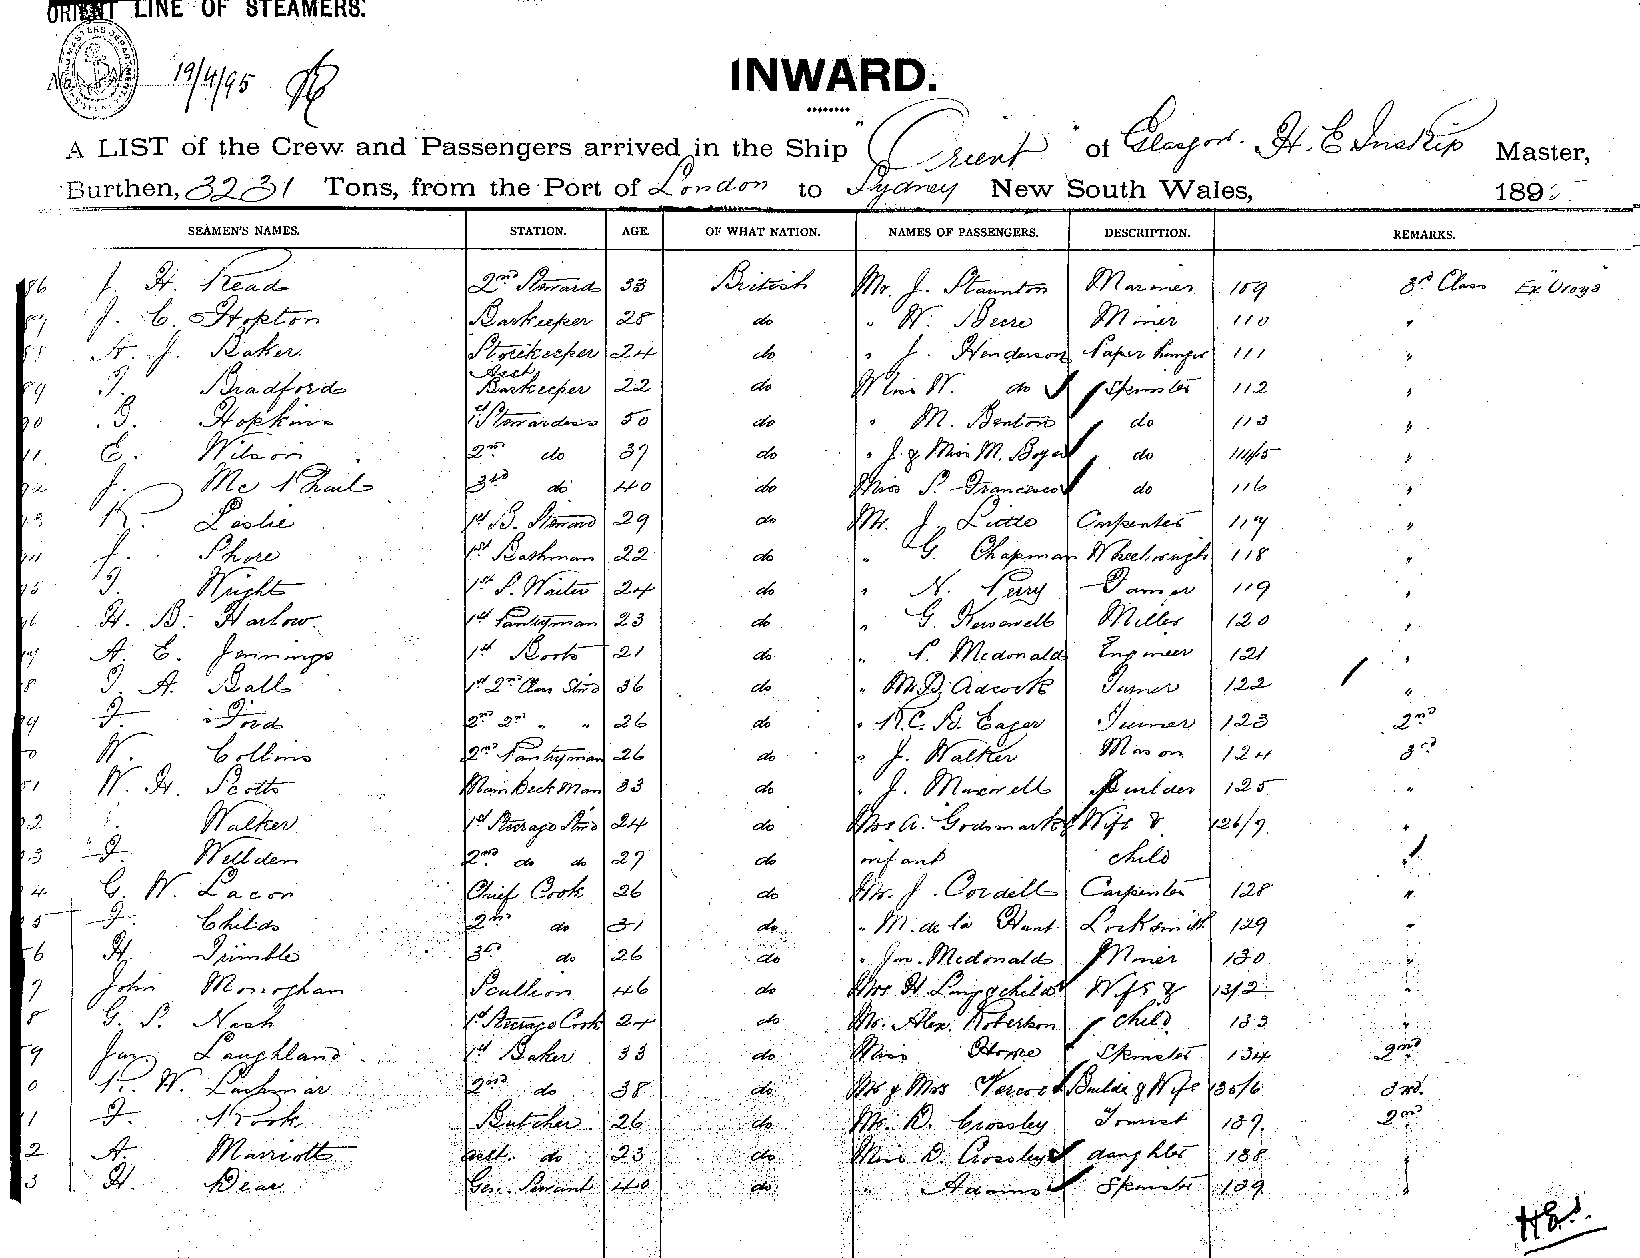 ORIENT LINE OF STEAMERS.
19/4/95
INWARD.
A LIST of the Crew and Passengers arrived in the Ship "Orient" of Glasgow. H. E. Inskip Master,
Burthen, 3231 Tons, from the Port of London to Sydney New South Wales, 1895
SEAMEN'S NAMES. STATION. AGE. OF WHAT NATION. NAMES OF PASSENGERS. DESCRIPTION. REMARKS.
86 J. H. Read 2nd Steward 33 British Mr. J. Staunton Mariner 109 3rd Class Ex "Oroya"
J. C. Hopton Barkeeper 28 do " W. Beere Miner 110 "
A. J. Baker Storekeeper 24 do " J. Henderson Paper hanger 111 "
89 Bradford Asst Barkeeper 22 do Miss W. do Spinster 112 "
90 Hopkins 1st Stewardess 50 do " M. Benton do 113 "
E. Wilson 2nd do 39 do " J. & Miss M. Boyer do 114/5 "
J. Mc Phail 3rd do 40 do Miss P. Francesco do 116 "
R. Leslie 1st B. Steward 29 do Mr. J. Little Carpenter 117 "
J. Shore 1st Bathman 22 do " G. Chapman Wheelwright 118 "
Wright 1st S. Waiter 24 do " N. Perry Farmer 119 "
H. B. Harlow 1st Pantryman 23 do " G. Miller 120 "
A. E. Jennings 1st Boots 21 do " P. Mcdonald Engineer 121 "
A. Ball 1st 2nd Class Stwd 36 do " M. D. Adcock Turner 122 "
F. Ford 2nd 2nd " " 26 do " R. C. B. Eager 123 2nd
W. Collins 2nd Pantryman 26 do " J. Walker Mason 124 3rd
W. H. Scotts Main Deck Man 33 do " J. Maxwell Builder 125 "
Walker 1st Steerage Stwd 24 do Mrs A. Godsmark & Wife & 126/7 "
F. Wellden 2nd do do 27 do infant child "
G. W. Lacon Chief Cook 26 do Mr. J. Cordell Carpenter 128 "
F. Childs 2nd do 31 do " M. de la Hunt Locksmith 129 "
H. Trimble 3rd do 26 do " Jno. Mcdonald Miner 130 "
John Monoghan Scullion 46 do Mrs H. & child Wife & 131/2 "
G. S. Nash 1st Steerage Cook 24 do Mr. Alex. Robertson child 133 "
Jas Laughland 1st Baker 33 do Miss Howe Spinster 134 2nd
W. 2nd do 38 do Mr & Mrs Builder & Wife 135/6 3rd
F. Rook Butcher 26 do Mr. D. Crossley Tourist 137 2nd
A. Marriott asst. do 23 do Miss D. Crossley daughter 138 "
H. Dear Gen. Servant 40 do " Adams Spinster 139 "